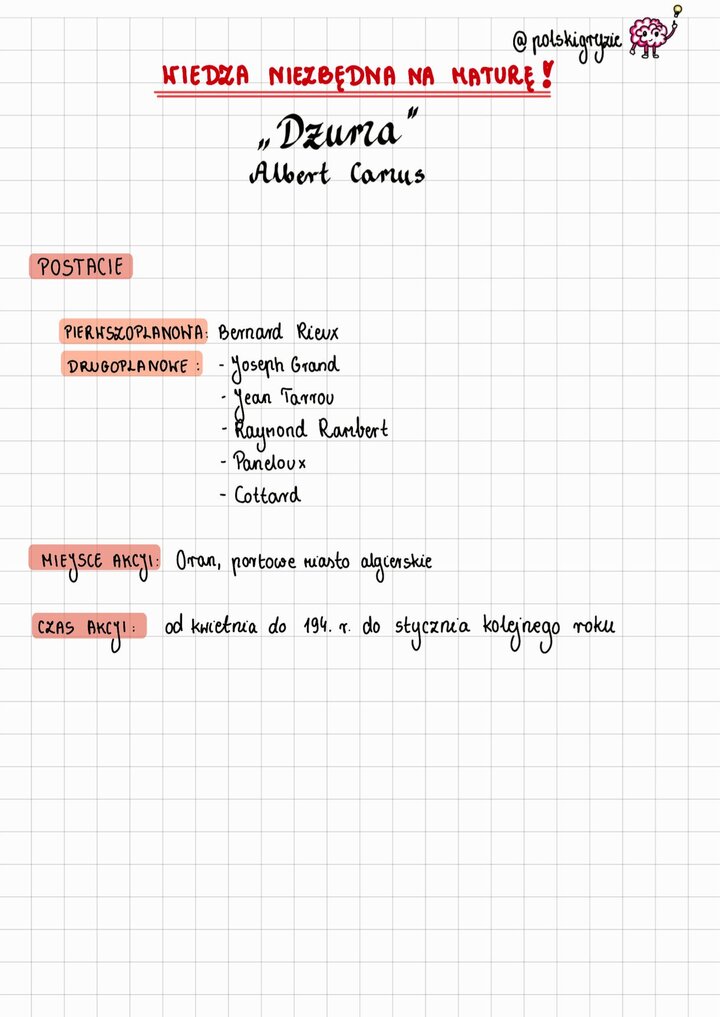 @polskigryzie
WIEDZA NIEZBĘDNA NA MATURĘ!
„Dżuma”
Albert Camus
POSTACIE
PIERWSZOPLANOWA: Bernard Rieux
DRUGOPLANOWE: - Joseph Grand
- Jean Tarrou
- Raymond Rambert
- Paneloux
- Cottard
MIEJSCE AKCJI: Oran, portowe miasto algierskie
CZAS AKCJI: od kwietnia do 194. r. do stycznia kolejnego roku